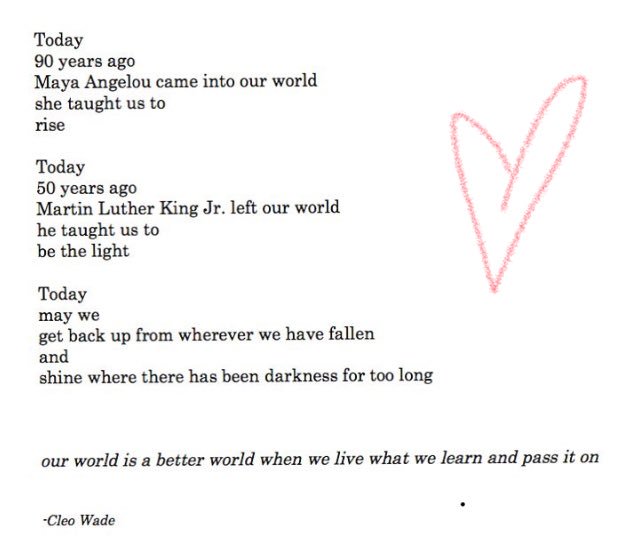 Today
90 years ago
Maya Angelou came into our world
she taught us to
rise
Today
50 years ago
Martin Luther King Jr. left our world
he taught us to
be the light
Today
may we
get back up from wherever we have fallen
and
shine where there has been darkness for too long
our world is a better world when we live what we learn and pass it on
-Cleo Wade